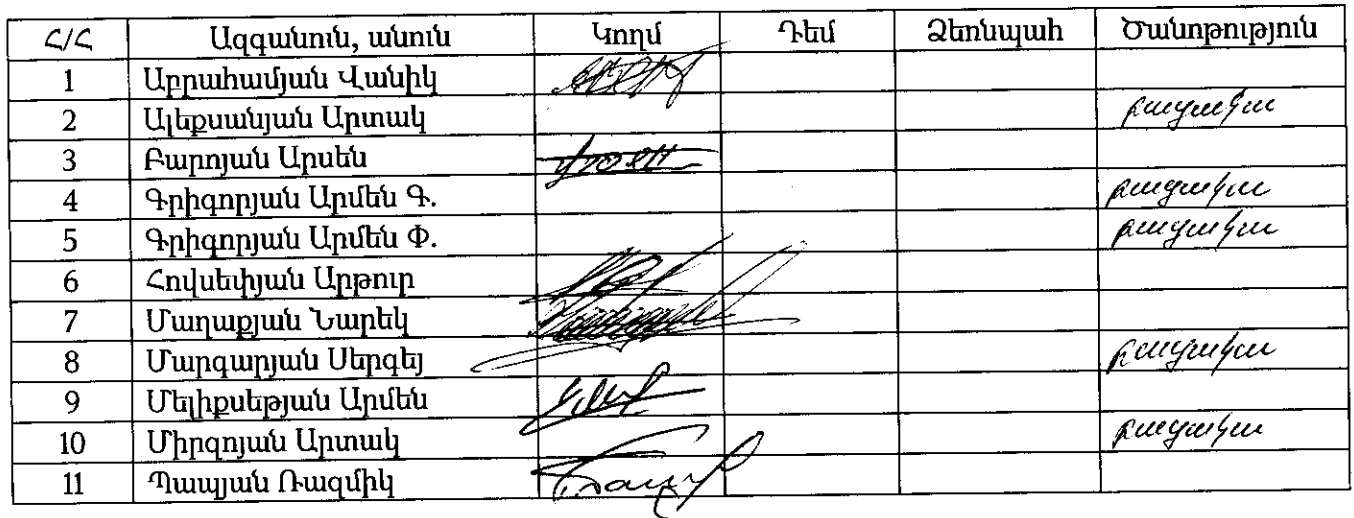 Հ/Հ Ազգանուն, անուն Կողմ Դեմ Ձեռնպահ Ծանոթություն
1 Աբրահամյան Վանիկ
2 Ալեքսանյան Արտակ բացակա
3 Բարոյան Արսեն
4 Գրիգորյան Արմեն Գ. բացակա
5 Գրիգորյան Արմեն Փ. բացակա
6 Հովսեփյան Արթուր
7 Մաղաքյան Նարեկ
8 Մարգարյան Սերգեյ բացակա
9 Մելիքսեթյան Արմեն
10 Միրզոյան Արտակ բացակա
11 Պապյան Ռազմիկ